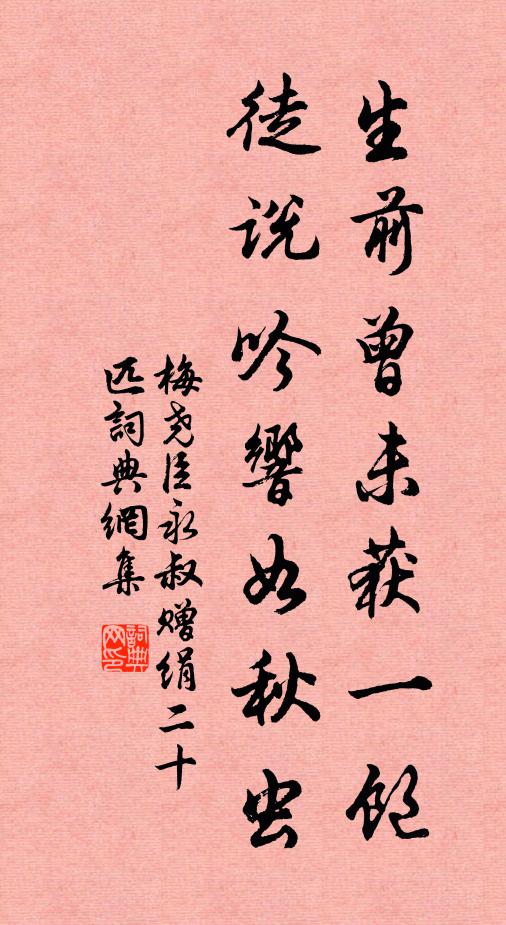 生前曾未获一饱
徒说吟響如秋虫
梅尧臣永叔赠绢二十
匹詞典網集
詞典網印